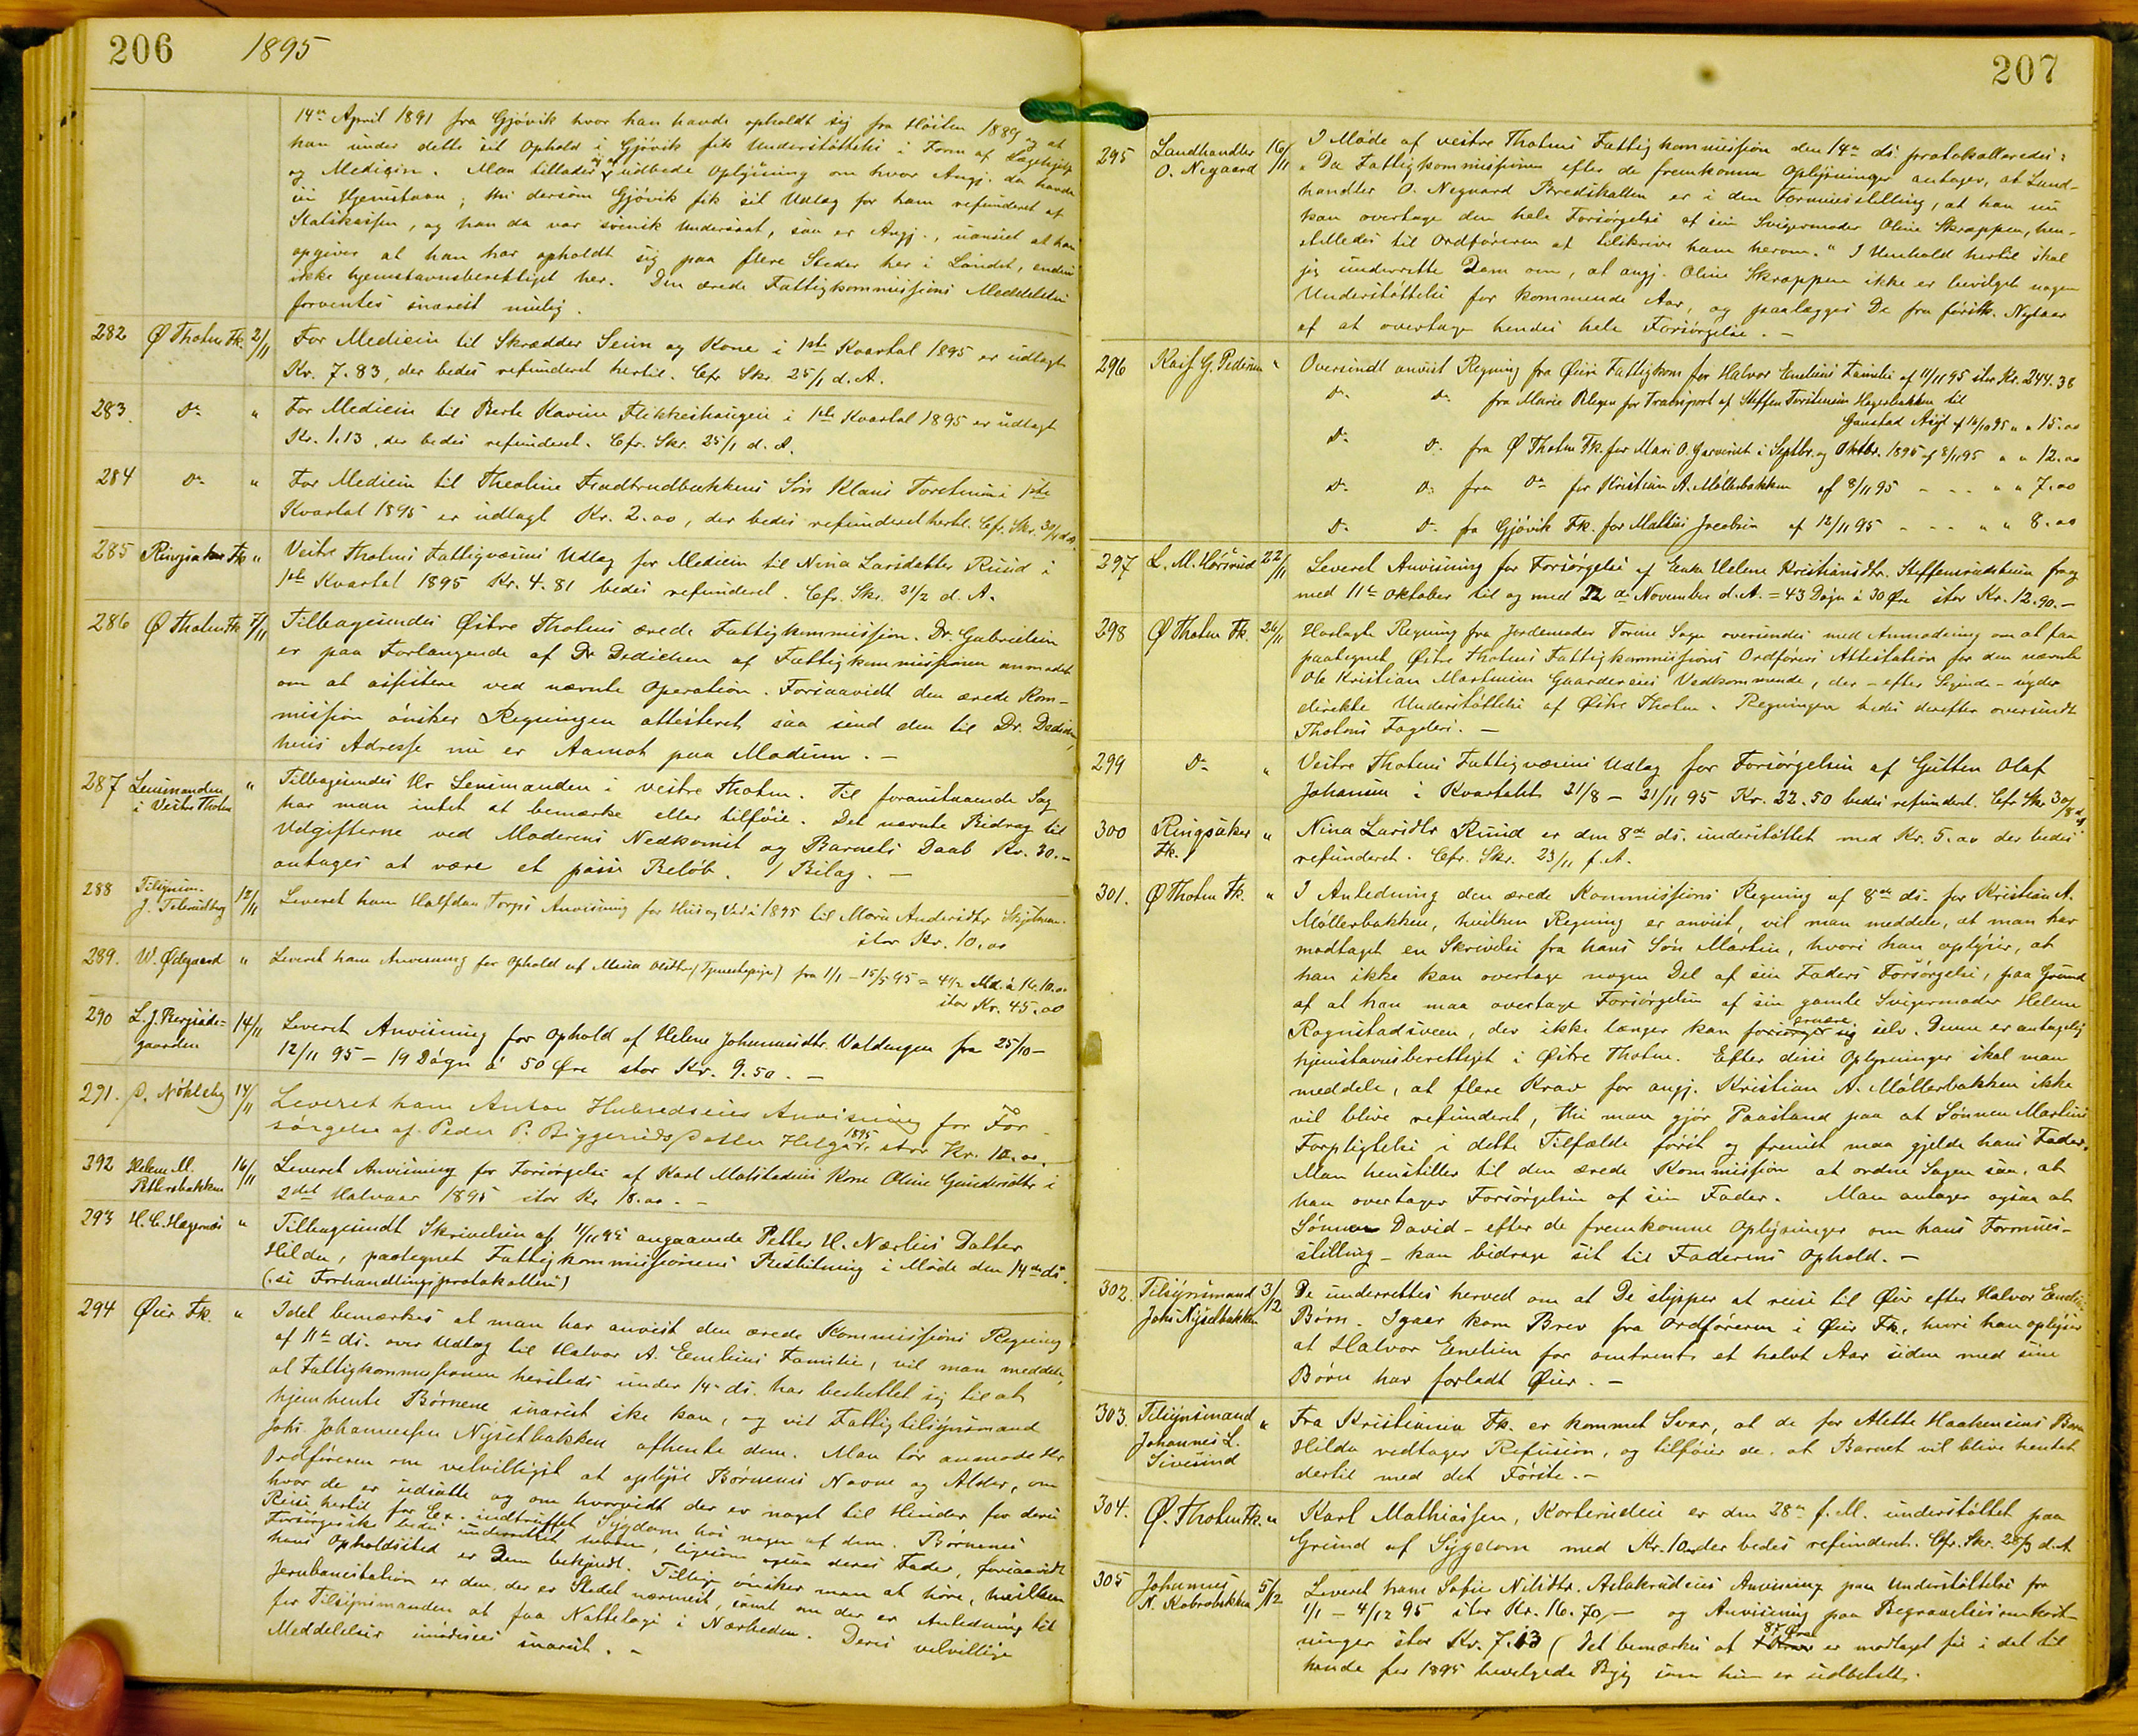 206 1895
14de April 1891 fra Gjøvik hvor han havde opholdt sig fra Høsten 1889 og at
han under dette sit Ophold i Gjøvik fik Understøttelse i Form af Lægehjælp
og Medicin. Man tillader sig at udbede Oplysning om hvor Angj. da havde
sin Hjemstavn; thi dersom Gjøvik fik sit Udlæg for ham refunderet af
Statskassen, og han da var svensk Undersaat, saa er Angj., uanset at han
opgiver at han har opholdt sig paa flere Steder her i Landet, endnu
ikke hjemstavnsberettiget her. Den ærede Fattigkommissions Meddelelse
forventes snarest mulig.
282 Ø Thoten Fk. 2/11 For Medicin til Skrædder Seim og Kone i 1ste Kvartal 1895 er udlagt
Kr. 7.83, der bedes refunderet hertil. Cfr Skr. 25/1 d. A.
283. Do " For Medicin til Berte Karine Flikkeshaugen i 1ste Kvartal 1895 er udlagt
Kr. 1.13, der bedes refunderet. Cfr. Skr. 25/1 d. A.
284 Do " For Medicin til Theoline Fradtrudbækkens Søn Klaus Torstensen i 1ste
Kvartal 1895 er udlagt Kr. 2.00, der bedes refunderet hertil. Cfr. Skr. 30/1 d. A.
285 Ringsaker Fk " Vestre Thotens Fattigvæsens Udlæg for Medicin til Nina Larsdatter Ruud i
1ste Kvartal 1895 Kr. 4.81 bedes refunderet. Cfr. Skr. 21/2 d. A.
286 Ø Thoten Fk 7/11 Tilbagesendes Østre Thotens ærede Fattigkommission. Dr. Gabrielsen
er paa Forlangende af Dr Dedichen af Fattigkommissionen anmodet
om at assistere ved nævnte Operation. Forsaavidt den ærede Kom-
mission ønsker Regningen attesteret saa send den til Dr. Dedichen,
hvis Adresse nu er Aamot paa Modum. -
287 Lensmanden
i Vestre Thoten " Tilbagesendes Hr Lensmanden i vestre Thoten. Til foranstaaende Sag
har man intet at bemærke eller tilføie. Det nævnte Bidrag til
Udgifterne ved Moderens Nedkomst og Barnets Daab Kr. 30.-
antages at være et passe Beløb. 1 Bilag. -
288 Tilsynsm.
J. 12/11 Leveret ham Halfdan Torps Anvisning for Hus og Ved i 1895 til Maria Andersdtr
stor Kr. 10.00
289. W. Ødegaard " Leveret ham Anvisning for Ophold af Mina Olsdtr fra 1/1 - 15/5 95 = 4 1/2 Md. à Kr. 10.00
stor Kr. 45.00
290 L. J.
gaarden 14/11 Leveret Anvisning for Ophold af Helene Johannesdtr. Valdengen fra 25/10 -
12/11 95 - 19 Døgn à 50 Øre stor Kr. 9.50. -
291. P. Nøkleby 14/11 Leveret ham Anton Hubredseies Anvisning for For-
sørgelse af Peder P. Biggeruds Datter Helga i 1895 stor Kr. 10.00.
392 Helene M.
Pettersbakken 16/11 Leveret Anvisning for Forsørgelse af Karl Matstadeies Kone Oline Gundersdtr i
2det Halvaar 1895 stor Kr 18.00. -
293 H. C. Hagernæs " Tilbagesendt Skrivelsen af 11/11 95 angaaende Petter H. Nærlies Datter
Hilda, paategnet Fattigkommissionens Beslutning i Møde den 14de ds.
(se Forhandlingsprotokollen)
294 Øier Fk. " Idet bemærkes at man har anvist den ærede Kommissions Regning
af 11te ds. over Udlæg til Halvor A. Emelius Familie, vil man meddele,
at Fattigkommissionen hersteds under 14de ds. har besluttet sig til at
hjemhente Børnene snarest ske kan, og vil Fattigtilsynsmand
Johs Johannessen Nysetbakken afhente dem. Man tør anmode Hr
Ordføreren om velvilligst at oplyse Børnenes Navne og Alder, om
hvor de er udsatte og om hvorvidt der er noget til Hinder for deres
Reise hertil for Ex. indtruffet Sygdom hos nogen af dem. Børnenes
Forsørgere bedes underrettet herom, ligesom ogsaa deres Fader, forsaavidt
hans Opholdssted er Dem bekjendt. Tillige ønsker man at høre, hvilken
Jernbanestation er den, der er Stedet nærmest, samt om der er Anledning til
for Tilsynsmanden at faa Natteleie i Nærheden. Deres velvillige
Meddelelse imødesees snarest. -
207
295 Landhandler
O. Nygaard 16/11 I Møde af vestre Thotens Fattigkommission den 14de ds. protokolleredes:
"Da Fattigkommissionen efter de fremkomne Oplysninger antager, at Land-
handler O. Nygaard Bredskallen er i den Formuesstilling, at han nu
kan overtage den hele Forsørgelse af sin Svigermoder Oline Skrappen, hen-
stilledes til Ordføreren at tilskrive ham herom." I Henhold hertil skal
jeg underrette Dem om, at angj. Oline Skrappen ikke er bevilget nogen
Understøttelse for kommende Aar, og paalægges De fra førstk. Nytaar
af at overtage hendes hele Forsørgelse. -
296 Kass. G. Pedersen " Oversendt anvist Regning fra Øiers Fattigkom for Halvor Emelius Familie af 11/11 95 stor Kr. 244.38
Do Do fra Marie Blegen for Transport af Steffen Torstensen Hagerbakken til
Gaustad Asyl af 16/10 95 " " 15.00
Do Do fra Ø Thoten Fk. for Mari O. Garverud i Septbr. og Oktbr. 1895 af 8/11 95 " " 12.00
Do Do fra Do for Kristian A. Møllerbakken af 8/11 95 - - - " " 7.00
Do Do fra Gjøvik Fk. for Mattis Jacobsen af 12/11 95 - - - " " 8.00
297 L. M. Hørsrud 22/11 Leveret Anvisning for Forsørgelse af Enke Helene Kristiansdtr. Steffensrudsheim fra og
med 11te Oktober til og med 22de November d. A. = 43 Døgn à 30 Øre stor Kr. 12.90. -
298 Ø Thoten Fk. 26/11 Hoslagte Regning fra Jordemoder Torine Sogn oversendes med Anmodning om at faa
paategnet Østre Thotens Fattigkommissions Ordførers Attestation for den nævnte
Ole Kristian Martinsen Gaarderseies Vedkommende, der - efter Sigende - nyder
direkte Understøttelse af Østre Thoten. Regningen bedes derefter oversendt
Thotens Fogderi. -
299 Do " Vestre Thotens Fattigvæsens Udlæg for Forsørgelsen af Gutten Olaf
Johansen i Kvartalet 21/8 - 21/11 95 Kr. 22.50 bedes refunderet. Cfr Skr 30/8 d. A.
300 Ringsaker
Fk. " Nina Larsdtr Ruud er den 8de ds. understøttet med Kr. 5.00 der bedes
refunderet. Cfr. Skr. 23/11 f. A.
301. Ø Thoten Fk. " I Anledning den ærede Kommissions Regning af 8de ds. for Kristian A.
Møllerbakken, hvilken Regning er anvist, vil man meddele, at man har
modtaget en Skrivelse fra hans Søn Martin, hvori han oplyser, at
han ikke kan overtage nogen Del af sin Faders Forsørgelse, paa Grund
af at han maa overtage Forsørgelsen af sin gamle Svigermoder Helene
Rognstadsveen, der ikke længer kan forsørger sig ernære selv. Denne er antagelig
hjemstavnsberettiget i Østre Thoten. Efter disse Oplysninger skal man
meddele, at flere Krav for angj. Kristian A. Møllerbakken ikke
vil blive refunderet, thi man gjør Paastand paa at Sønnen Martins
Forpligtelse i dette Tilfælde først og fremst maa gjelde hans Fader.
Man henstiller til den ærede Kommission at ordne Sagen saa, at
han overtager Forsørgelsen af sin Fader. Man antager ogsaa at
Sønnen David - efter de fremkomne Oplysninger om hans Formues-
stilling - kan bidrage sit til Faderens Ophold. -
302. Tilsynsmand
Johs Nysetbakken 3/12 De underrettes herved om at De slipper at reise til Øier efter Halvor Emelius
Børn. Igaar kom Brev fra Ordføreren i Øier Fk, hvori han oplyser
at Halvor Emelius for omtrent et halvt Aar siden med sine
Børn har forladt Øier. -
303. Tilsynsmand
Johannes L.
Sivesind " Fra Kristiania Fk. er kommet Svar, at de for Alette Haakensens Barn
Hilda vedtager Refusion, og tilføier de. at Barnet vil blive hentet
dertil med det Første. -
304. Ø. Thoten Fk. " Karl Mathiassen, Korterudeie er den 28de f. M. understøttet paa
Grund af Sygdom med Kr. 10, der bedes refunderet. Cfr. Skr. 28/3 d. A.
305 Johannes
N. Kobrobakken 5/12 Leveret ham Sofie Nilsdtr. Aslakrudeies Anvisning paa Understøttelse fra
1/1 - 4/12 95 stor Kr. 16.70, - og Anvisning paa Begravelsesomkost-
ninger stor Kr. 7.13 (Det bemærkes at 87 Øre er modtaget for i det til
hende for 1895 bevilgede Byg som hun er udbetalt.